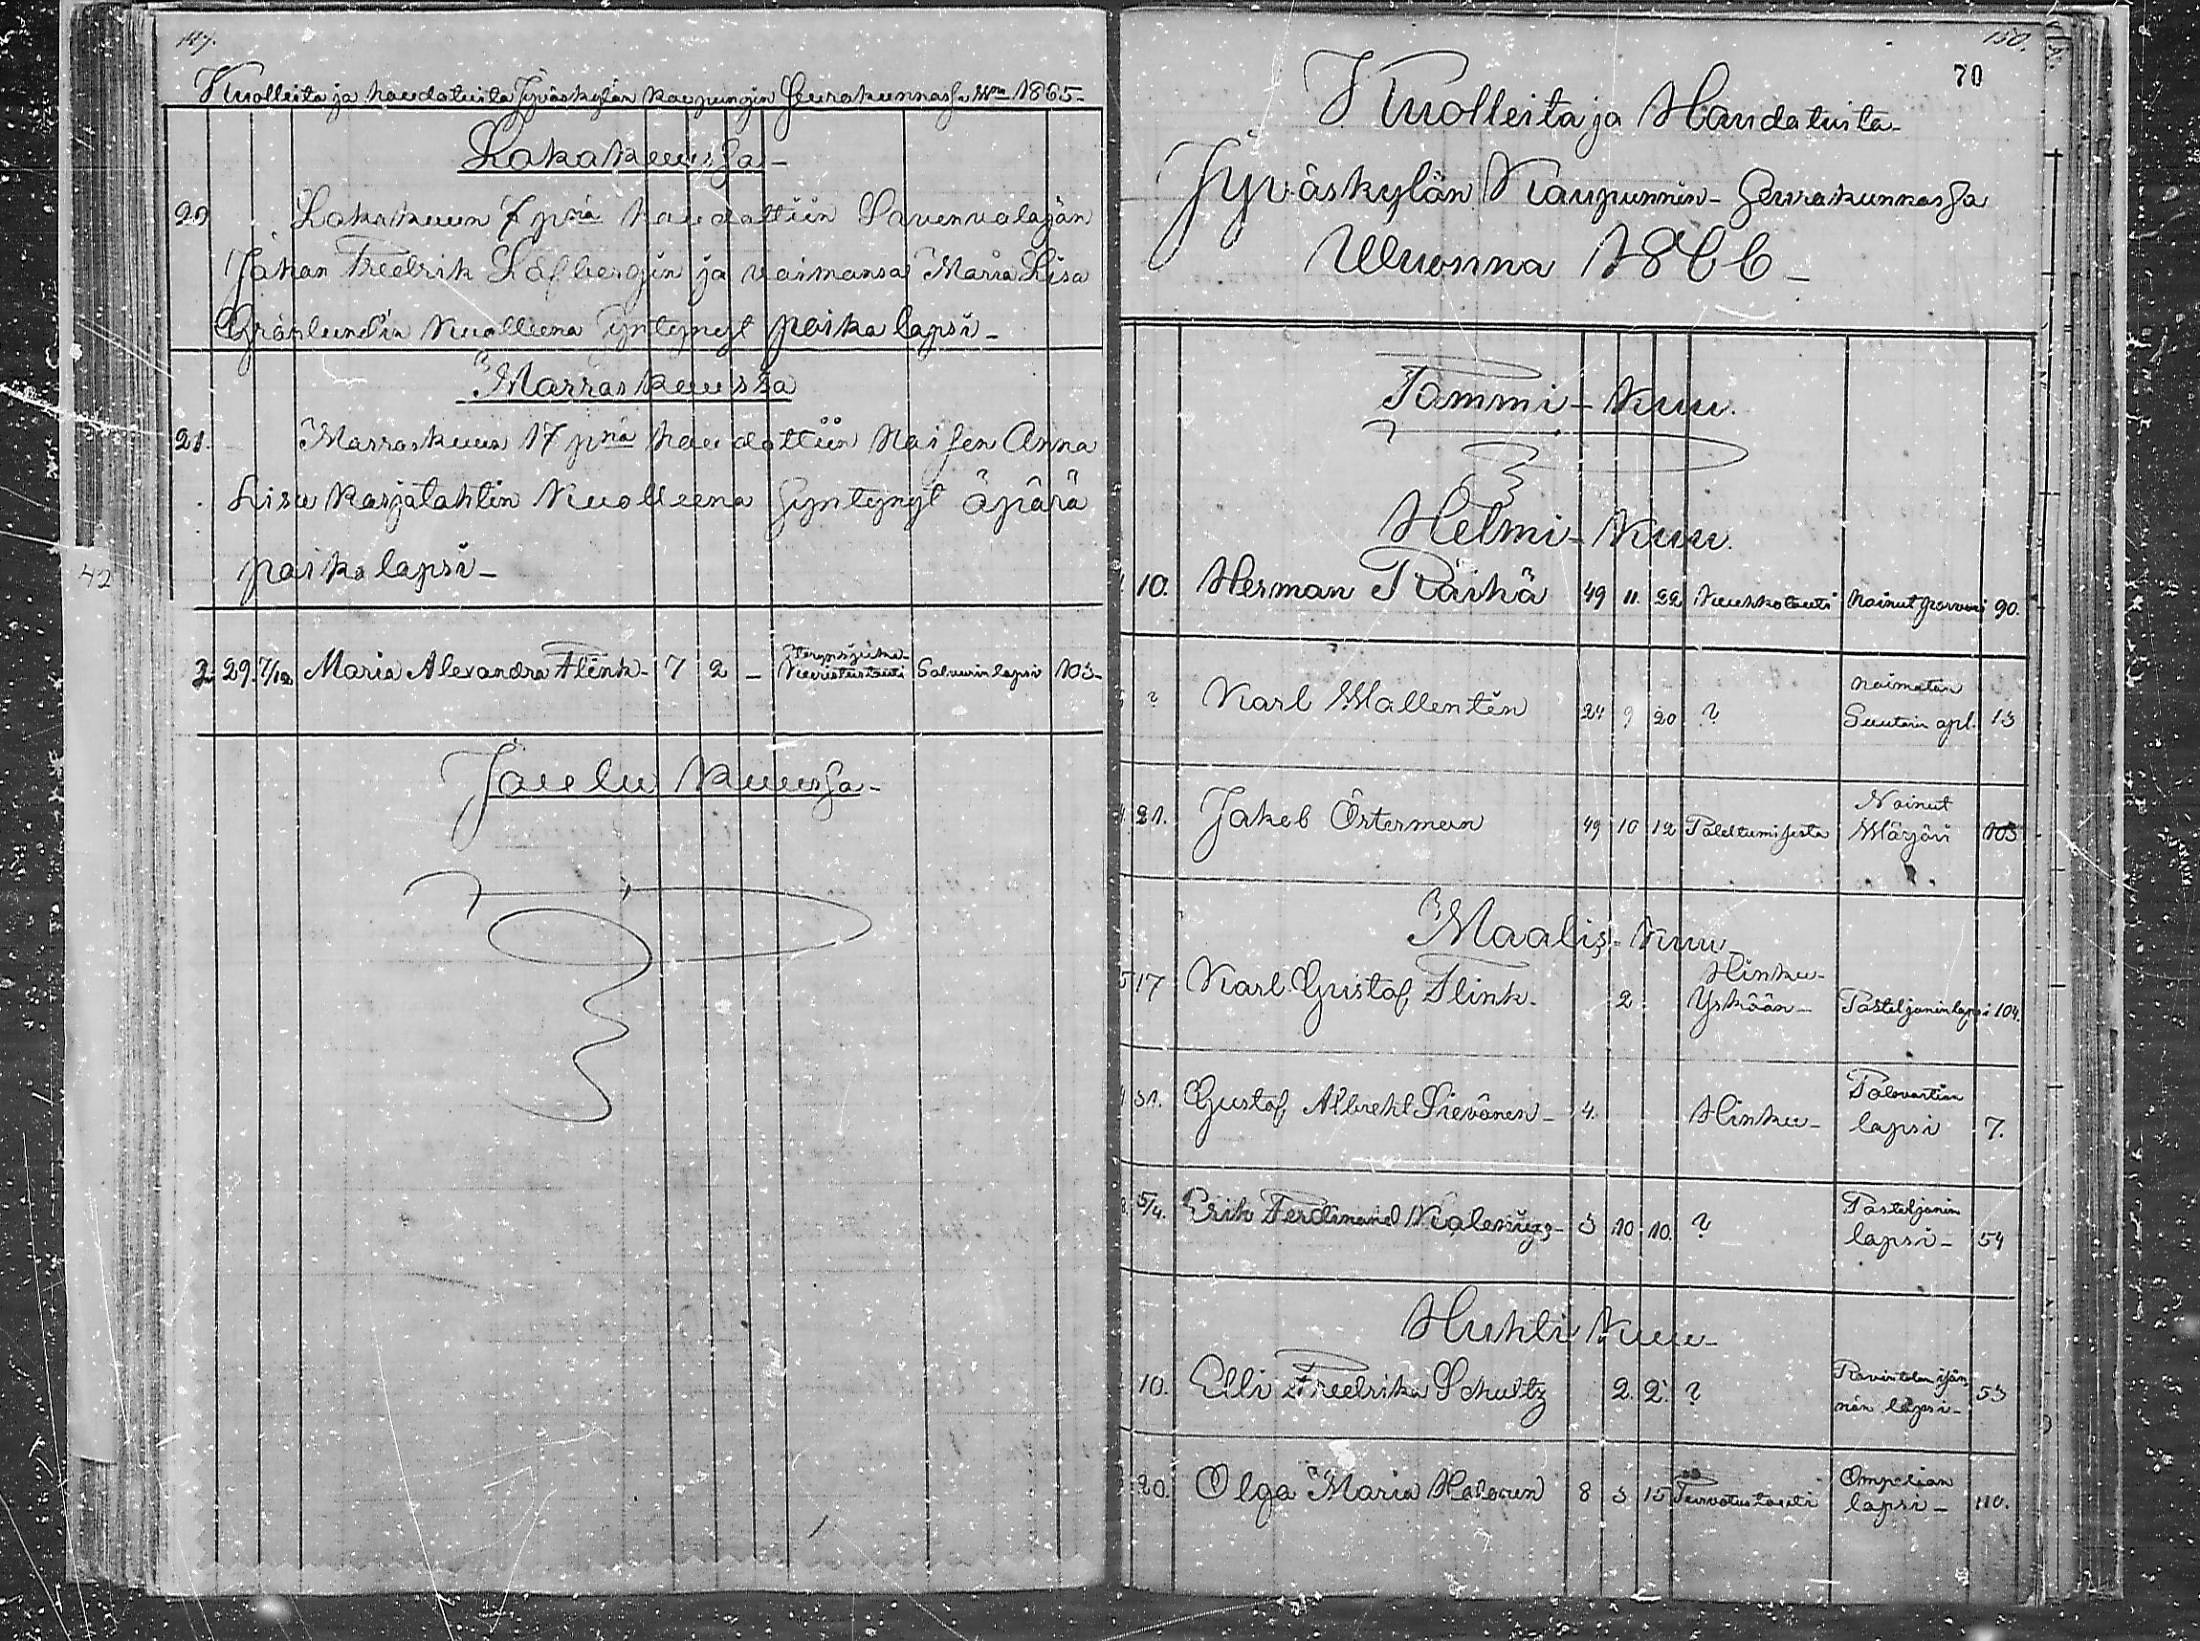 147.
Kuolleita ja haudatuita Jyväskylän kaupungin Seurakunnassa Wna 1865-
Lokakuussa-
20 Lokakuun 7 pnä haudattiin Savenvalajan
Johan Fredrik Löfbergin ja vaimonsa Maria Lisa
Grönlundin Kuolleena syntynyt poika lapsi-
Marraskuussa
21. Marraskuun 17 pnä haudattiin Naisen Anna
Lisa Karjalahtin Kuolleena syntynyt äpärä
poika lapsi-
29. 7/12 Maria Alexandra Flink- 7 2 - Kuristustauti Salvurin lapsi 103-
Joulu Kuussa-
42
150.
70
Kuolleita ja Haudatuita-
Jyväskylän Kaupunnin- Seurakunnassa
Wuonna 1866-
Tammi-Kuu.
Helmi-Kuu.
10. Herman Räihä 49 11. 22 Keuhkotauti Nainut porvari 90.
? Karl Wallentin 24 9 20 ? naimatoin
Suutarin opl. 13
21. Jakob Österman 49 10 12 Paleltumisesta Nainut
Wärjäri 103
Maalis-Kuu-
17 Karl Gustaf Flink- 2 Hinku-
Yskään- Postiljonin lapsi 104.
31. Gustaf Albreht Sievänen- 4. Hinku- Palovartian
lapsi 7.
5/4. Erik Ferdinand Kalenius- 3 10 10. ? Postiljonin
lapsi- 54
Huhti Kuu-
10. Elli Fredrika Schultz 2. 2. ? Ravintolan isän-
nän lapsi- 53
20. Olga Maria Halonen 8 3 15 Turvotustauti Ompelian
lapsi- 110.